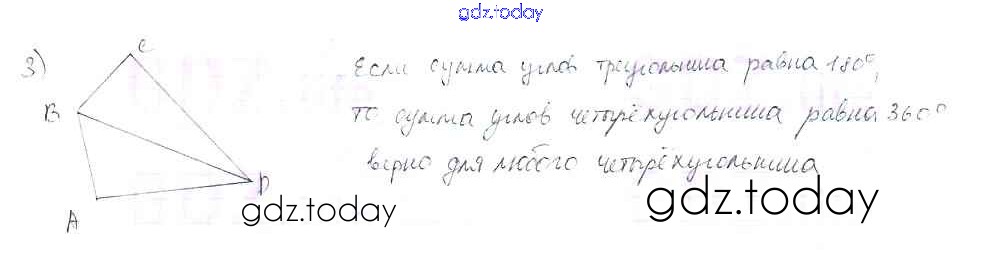 gdz.today
3)
C
Если сумма углов треугольника равна 180°,
B
то сумма углов четырёхугольника равна 360°
верно для любого четырёхугольника
D
A
gdz.today
gdz.today